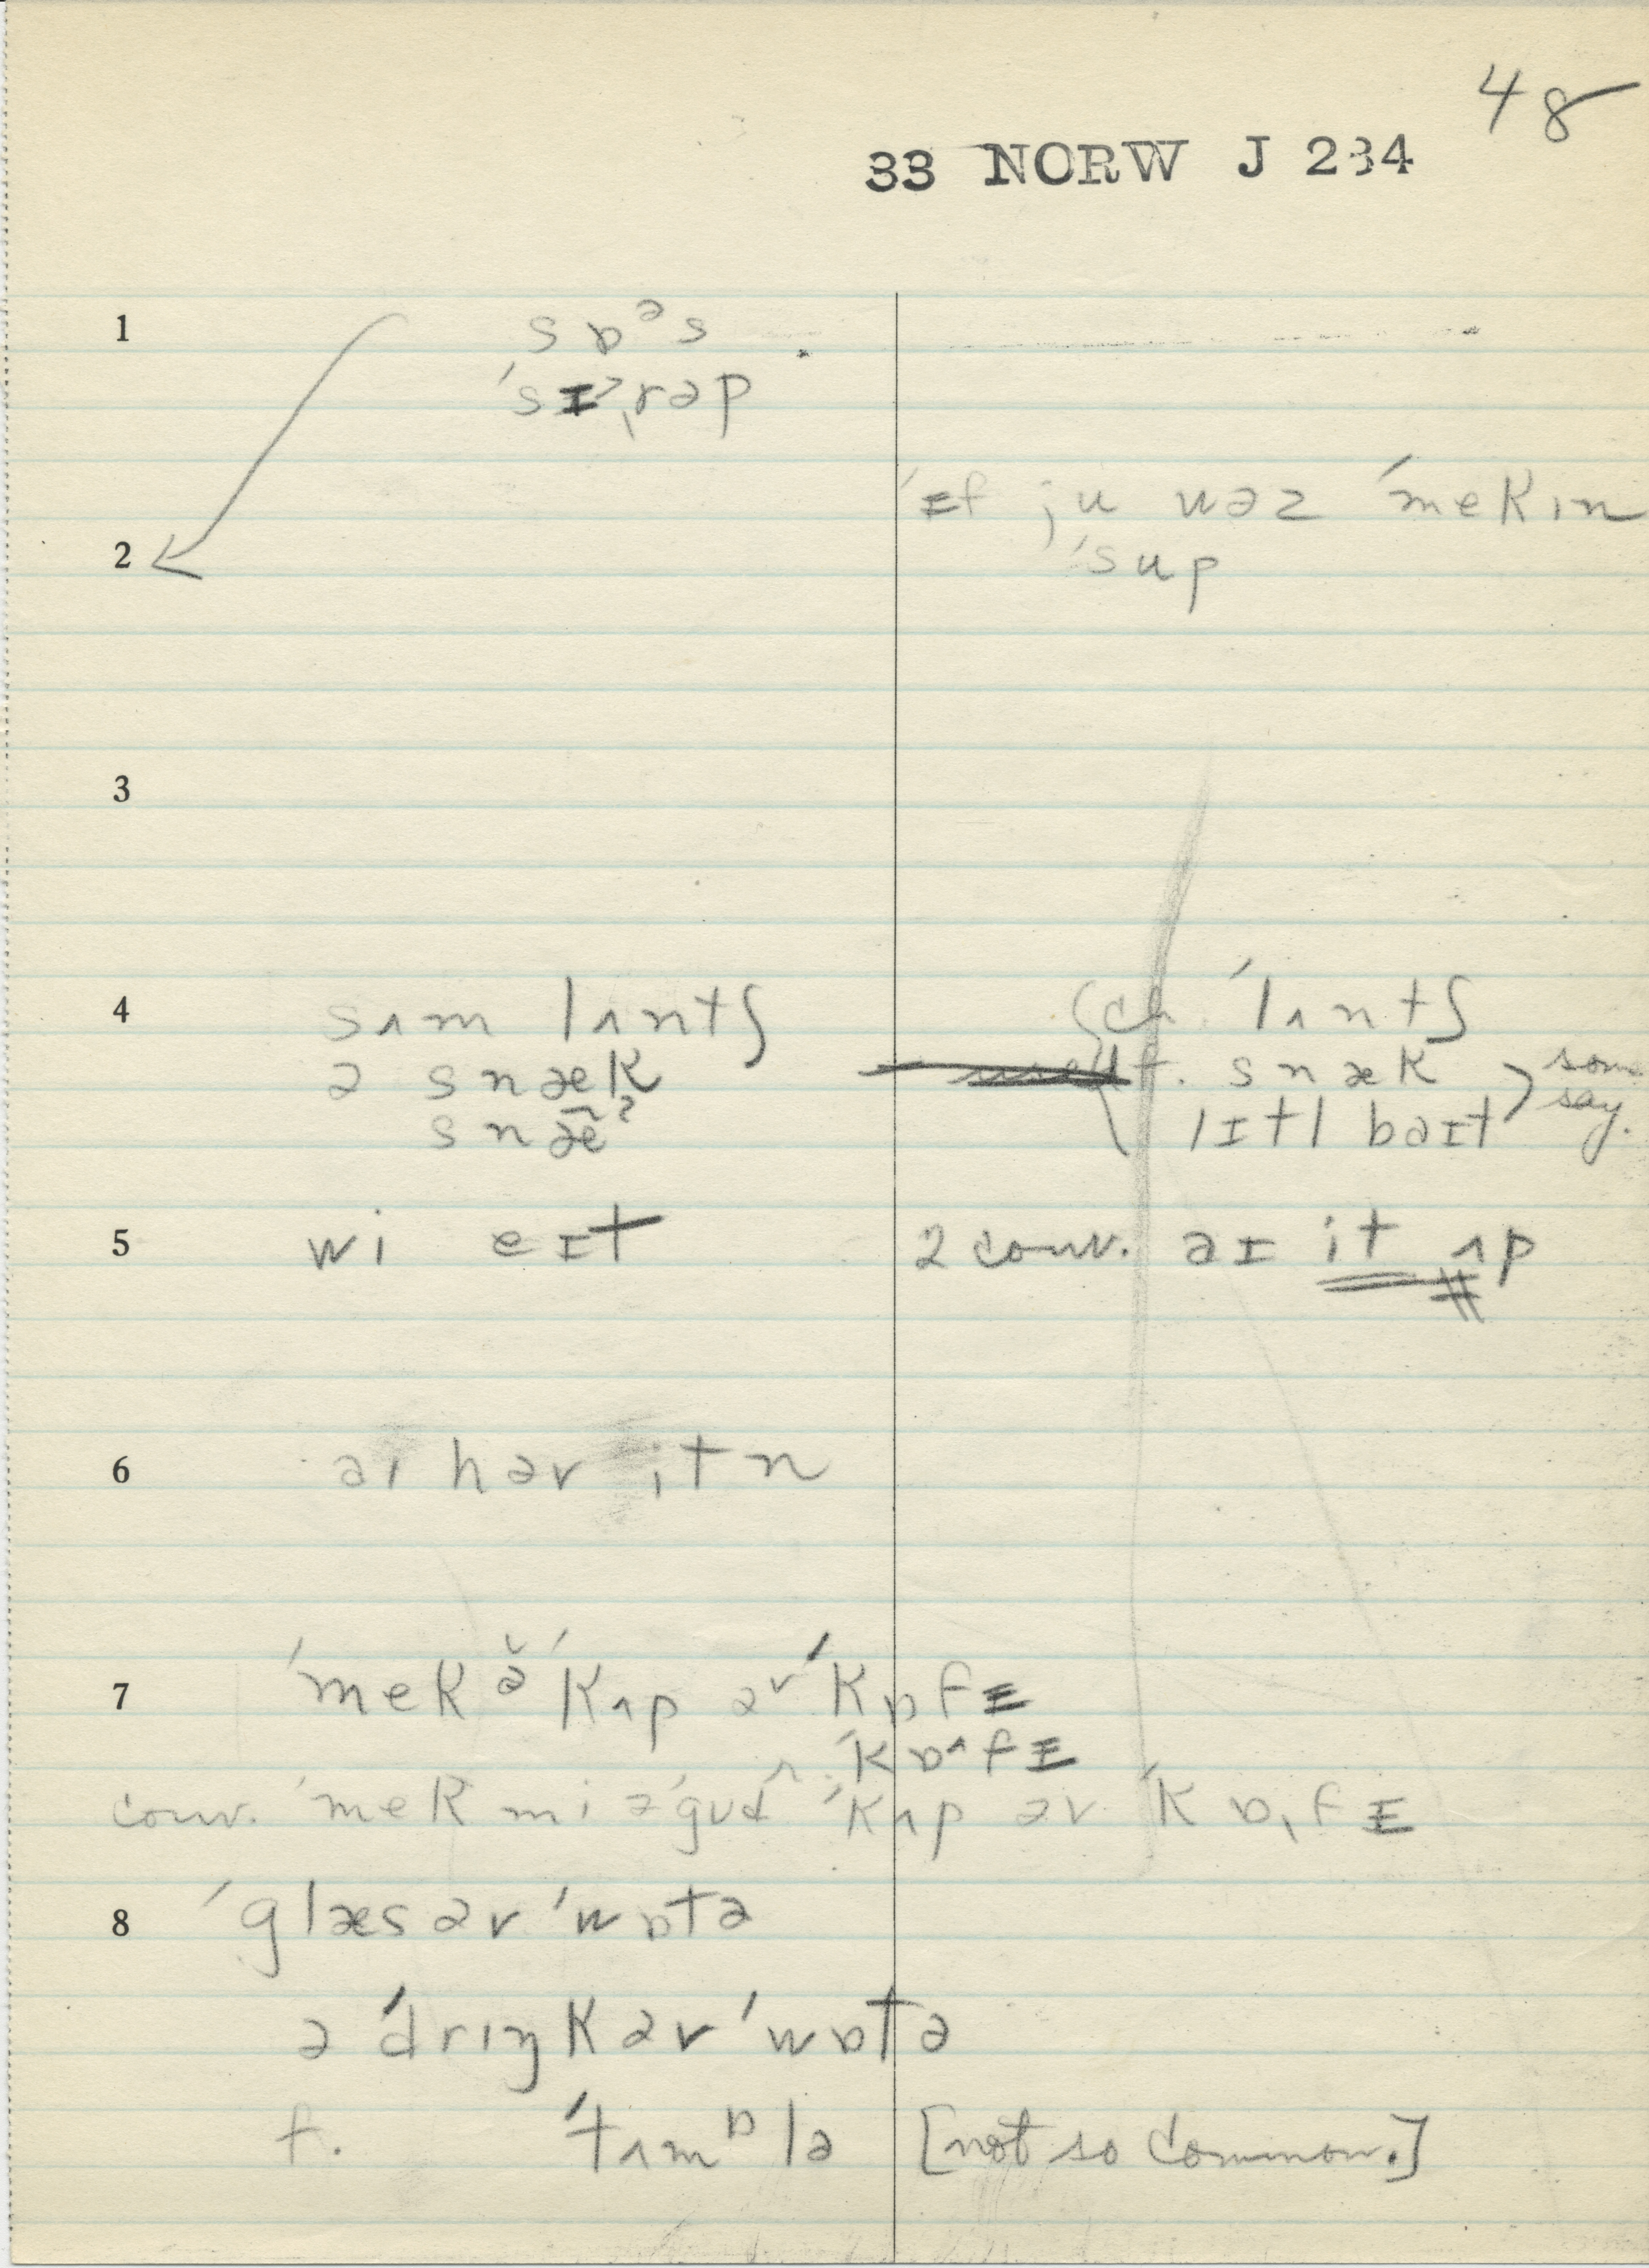 48
33 NORW J 234
1 sɒᵊs
ˈsɪˀˌrəp
ˈɪf ju wəz ˈmekɪn
2 ˈsup
3
4 sʌm lʌntʃ ch. ˈlʌntʃ
ə snæk f. snæk } some say.
snæ̃ˀ lɪtl baɪt
5 wi eɪt 2 conv. aɪ it ʌp
6 aɪ həv itn
7 ˈmek ə̆ ˈkʌp əv ˈkɒfɪ
ˈkɒ^fɪ
conv. ˈmek mi ə ˈgud ˈkʌp əv ˈkɒˌfɪ
8 ˈglæs əv ˈwɒtə
ə ˈdrɪŋk əv ˈwɒtə
f. ˈtʌmᵇlə [not so common.]